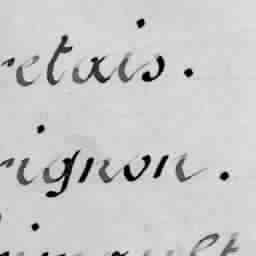 retais.
rignon.